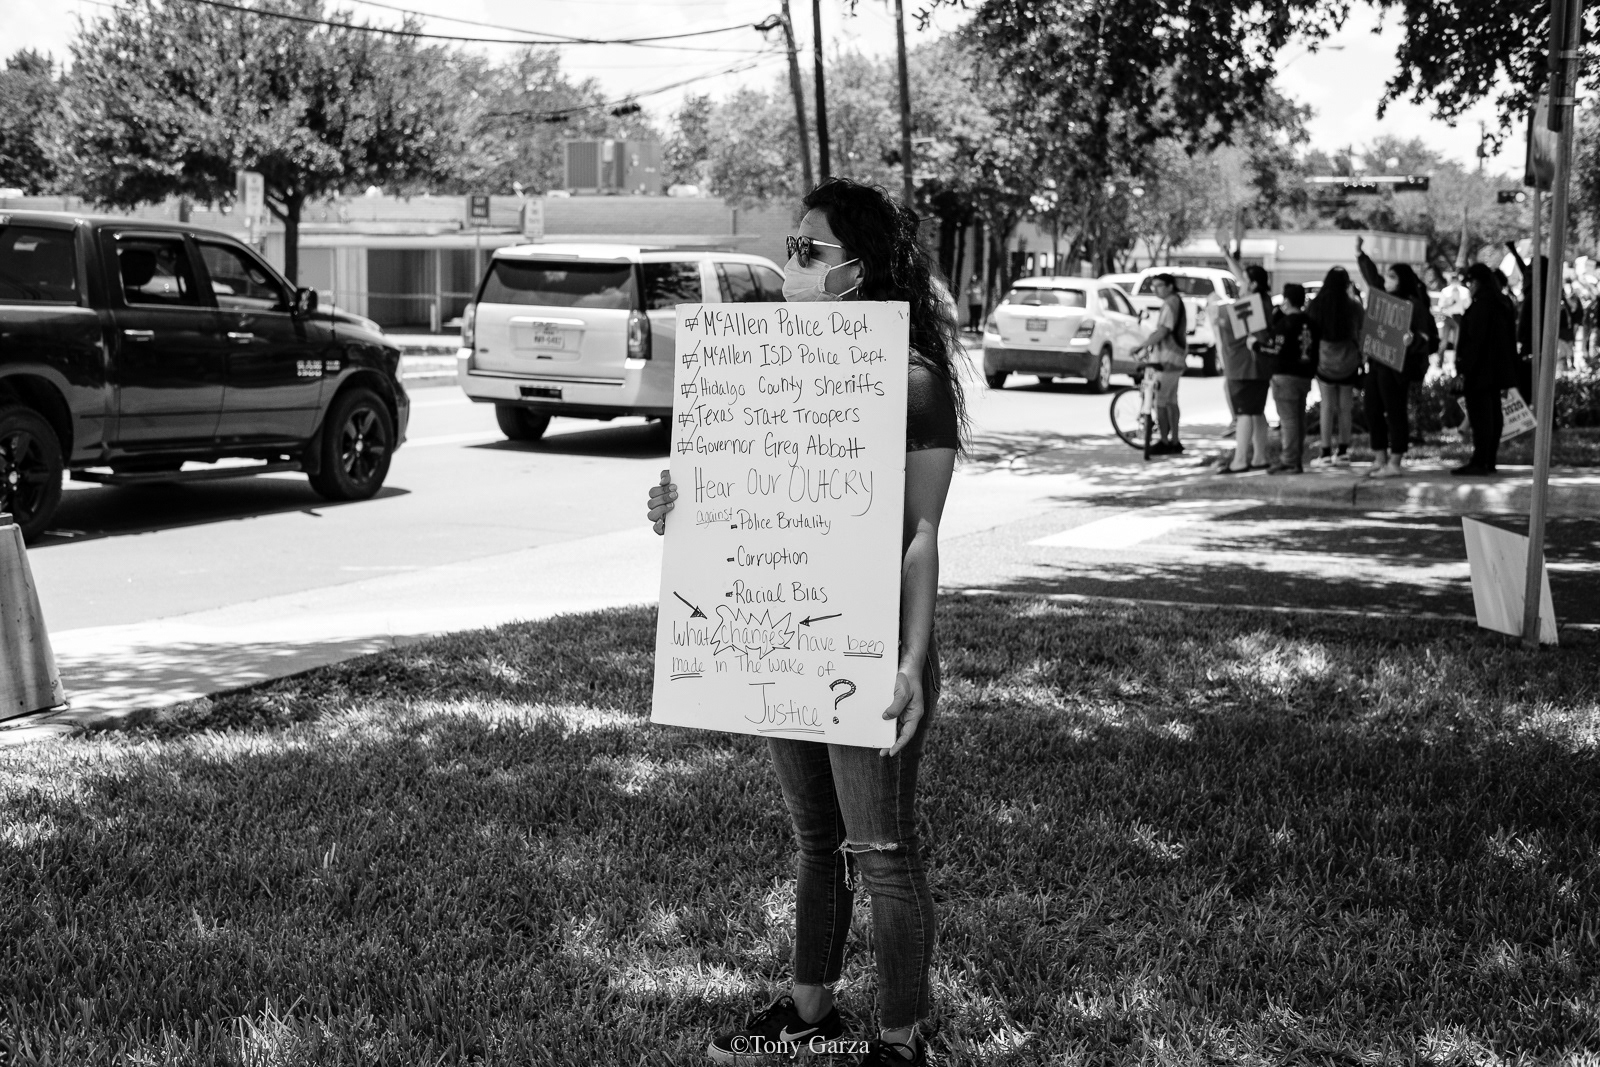 McAllen Police Dept.
McAllen ISD Police Dept.
Hidalgo County Sheriffs
Texas State Troopers
Governor Greg Abbott
Hear Our OUTCRY
against
- Police Brutality
- Corruption
- Racial Bias
What changes have been
made in The wake of
Justice?
LATINOS
for
RAM
1500
©Tony Garza